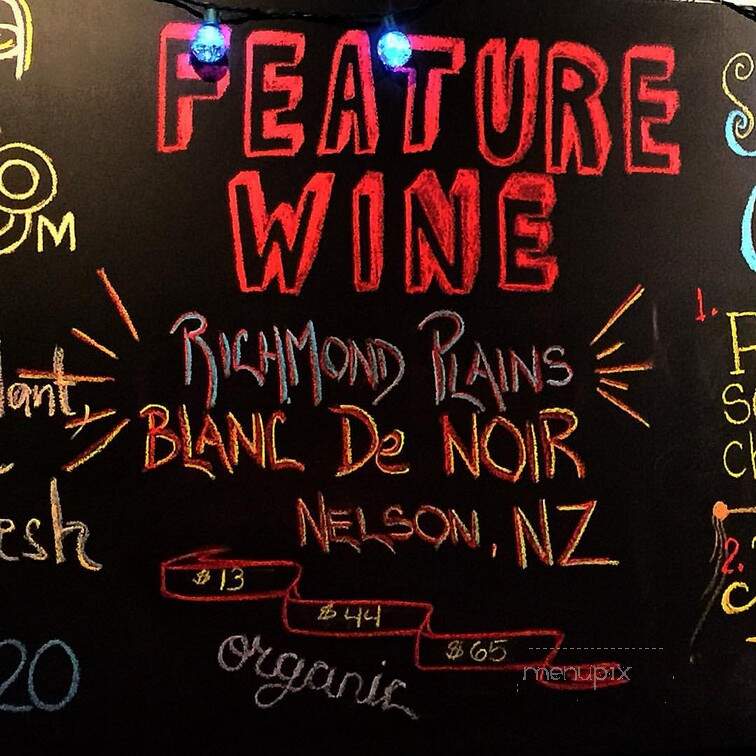 FEATURE
WINE
RICHMOND PLAINS
BLANC De NOIR
NELSON, NZ
$13
$44
$65
organic
menupix
M
lant,
esh
20
1.
2.